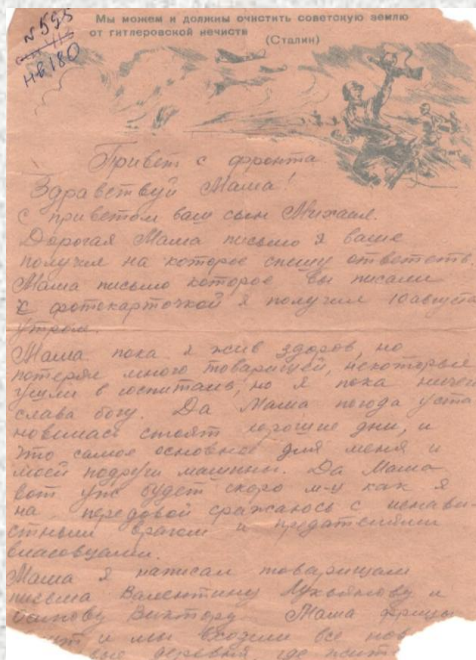 Мы можем и должны очистить советскую землю
от гитлеровской нечисти
(Сталин)
№ 595
НВ 180
Привет с фронта
Здравствуй Мама!
с приветом ваш сын Михаил.
Дорогая Мама письмо я ваше
получил на которое спешу ответеть.
Мама письмо которое вы писали
с фотокарточкой я получил 10 августа
утром.
Мама пока я жив здоров, но
потерял много товарищей, некоторые
ушли в госпиталь, но я пока ничего
слава богу. Да Мама погода уста
новилась стоят хорошие дни, и
это самое основное для меня и
моей подруги машины. Да Мама
вот уже будет скоро м-ц как я
на передовой сражаюсь с ненави-
стным врагом и предателями
власовцами.
Мама я написал товарищам
письма Валентину и
Виктору Мама фрицы
и мы все
деревня где